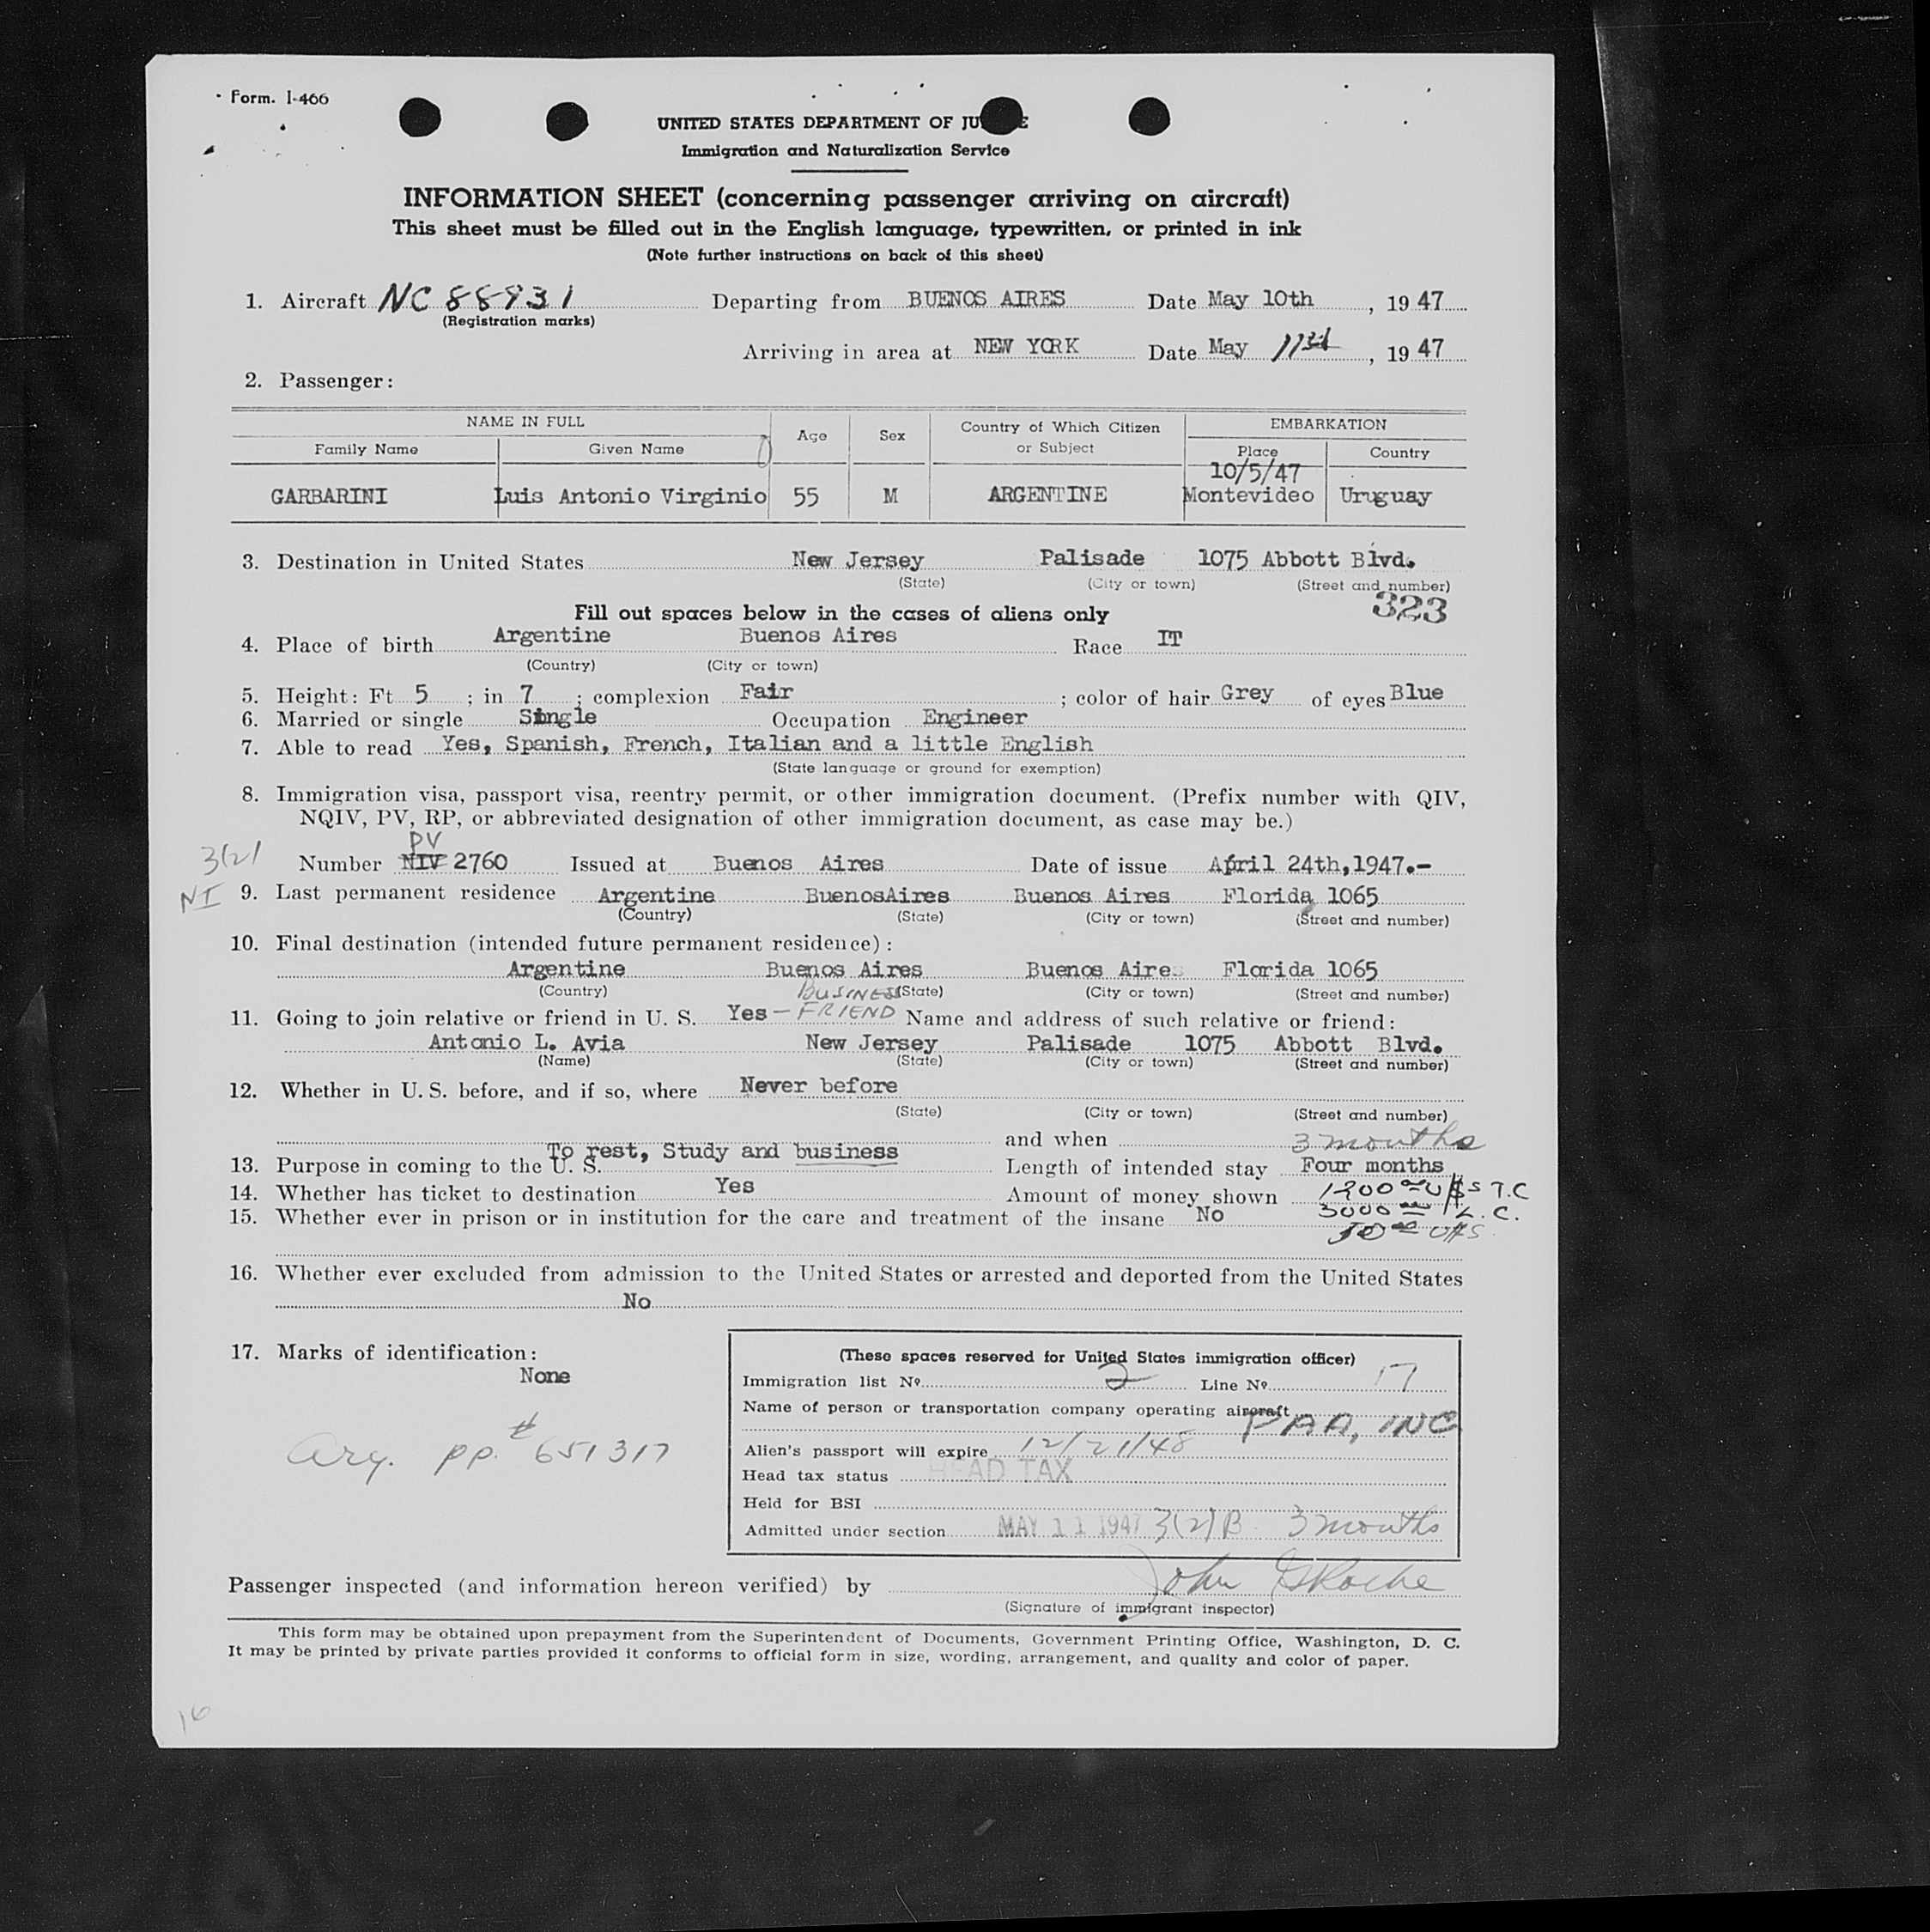 Form. I-466
UNITED STATES DEPARTMENT OF JU E
Immigration and Naturalization Service
INFORMATION SHEET (concerning passenger arriving on aircraft)
This sheet must be filled out in the English language, typewritten, or printed in ink
(Note further instructions on back of this sheet)
1. Aircraft NC 88931 Departing from BUENOS AIRES Date May 10th, 19 47
(Registration marks)
Arriving in area at NEW YORK Date May 19 47
2. Passenger:
NAME IN FULL Age Sex Country of Which Citizen or Subject EMBARKATION
Family Name Given Name Place Country
10/5/47
GARBARINI Luis Antonio Virginio 55 M ARGENTINE Montevideo Uruguay
3. Destination in United States New Jersey Palisade 1075 Abbott Blvd.
(State) (City or town) (Street and number)
323
Fill out spaces below in the cases of aliens only
4. Place of birth Argentine Buenos Aires Race IT
(Country) (City or town)
5. Height: Ft 5 ; in 7 ; complexion Fair ; color of hair Grey of eyes Blue
6. Married or single Single Occupation Engineer
7. Able to read Yes, Spanish, French, Italian and a little English
(State language or ground for exemption)
8. Immigration visa, passport visa, reentry permit, or other immigration document. (Prefix number with QIV,
NQIV, PV, RP, or abbreviated designation of other immigration document, as case may be.)
PV
3(2)
Number NIV 2760 Issued at Buenos Aires Date of issue April 24th,1947.-
NI
9. Last permanent residence Argentine BuenosAires Buenos Aires Florida 1065
(Country) (State) (City or town) (Street and number)
10. Final destination (intended future permanent residence):
Argentine Buenos Aires Buenos Aires Florida 1065
(Country) (State) (City or town) (Street and number)
BUSINESS
11. Going to join relative or friend in U. S. Yes - FRIEND Name and address of such relative or friend:
Antonio L. Avia New Jersey Palisade 1075 Abbott Blvd.
(Name) (State) (City or town) (Street and number)
12. Whether in U. S. before, and if so, where Never before
(State) (City or town) (Street and number)
and when
3 months
13. Purpose in coming to the U. S. To rest, Study and business Length of intended stay Four months
14. Whether has ticket to destination Yes Amount of money shown U$S T.C
15. Whether ever in prison or in institution for the care and treatment of the insane No 3000 L.C.
50 U$S
16. Whether ever excluded from admission to the United States or arrested and deported from the United States
No
17. Marks of identification:
None
Arg. pp. # 651317
(These spaces reserved for United States immigration officer)
Immigration list No. 2 Line No. 17
Name of person or transportation company operating aircraft
PAA, INC
Alien's passport will expire 12/21/48
Head tax status HEAD TAX
Held for BSI
Admitted under section MAY 11 1947 3(2)B 3 months
Passenger inspected (and information hereon verified) by John Roche
(Signature of immigrant inspector)
This form may be obtained upon prepayment from the Superintendent of Documents, Government Printing Office, Washington, D. C.
It may be printed by private parties provided it conforms to official form in size, wording, arrangement, and quality and color of paper.
16